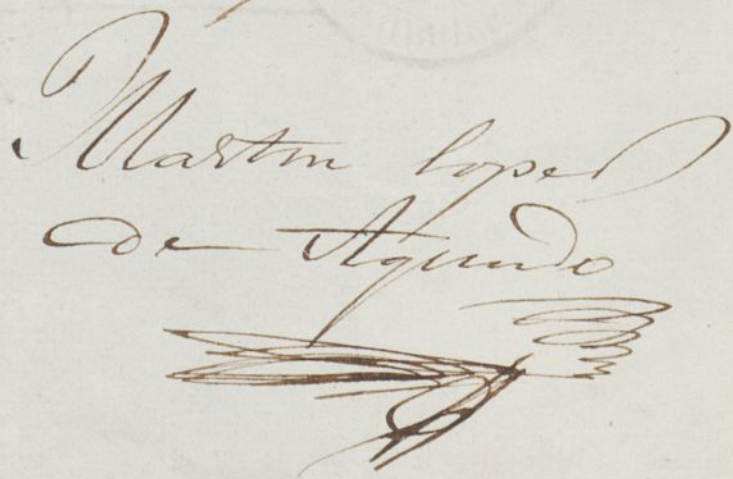 Martin Lopez
de Aguado